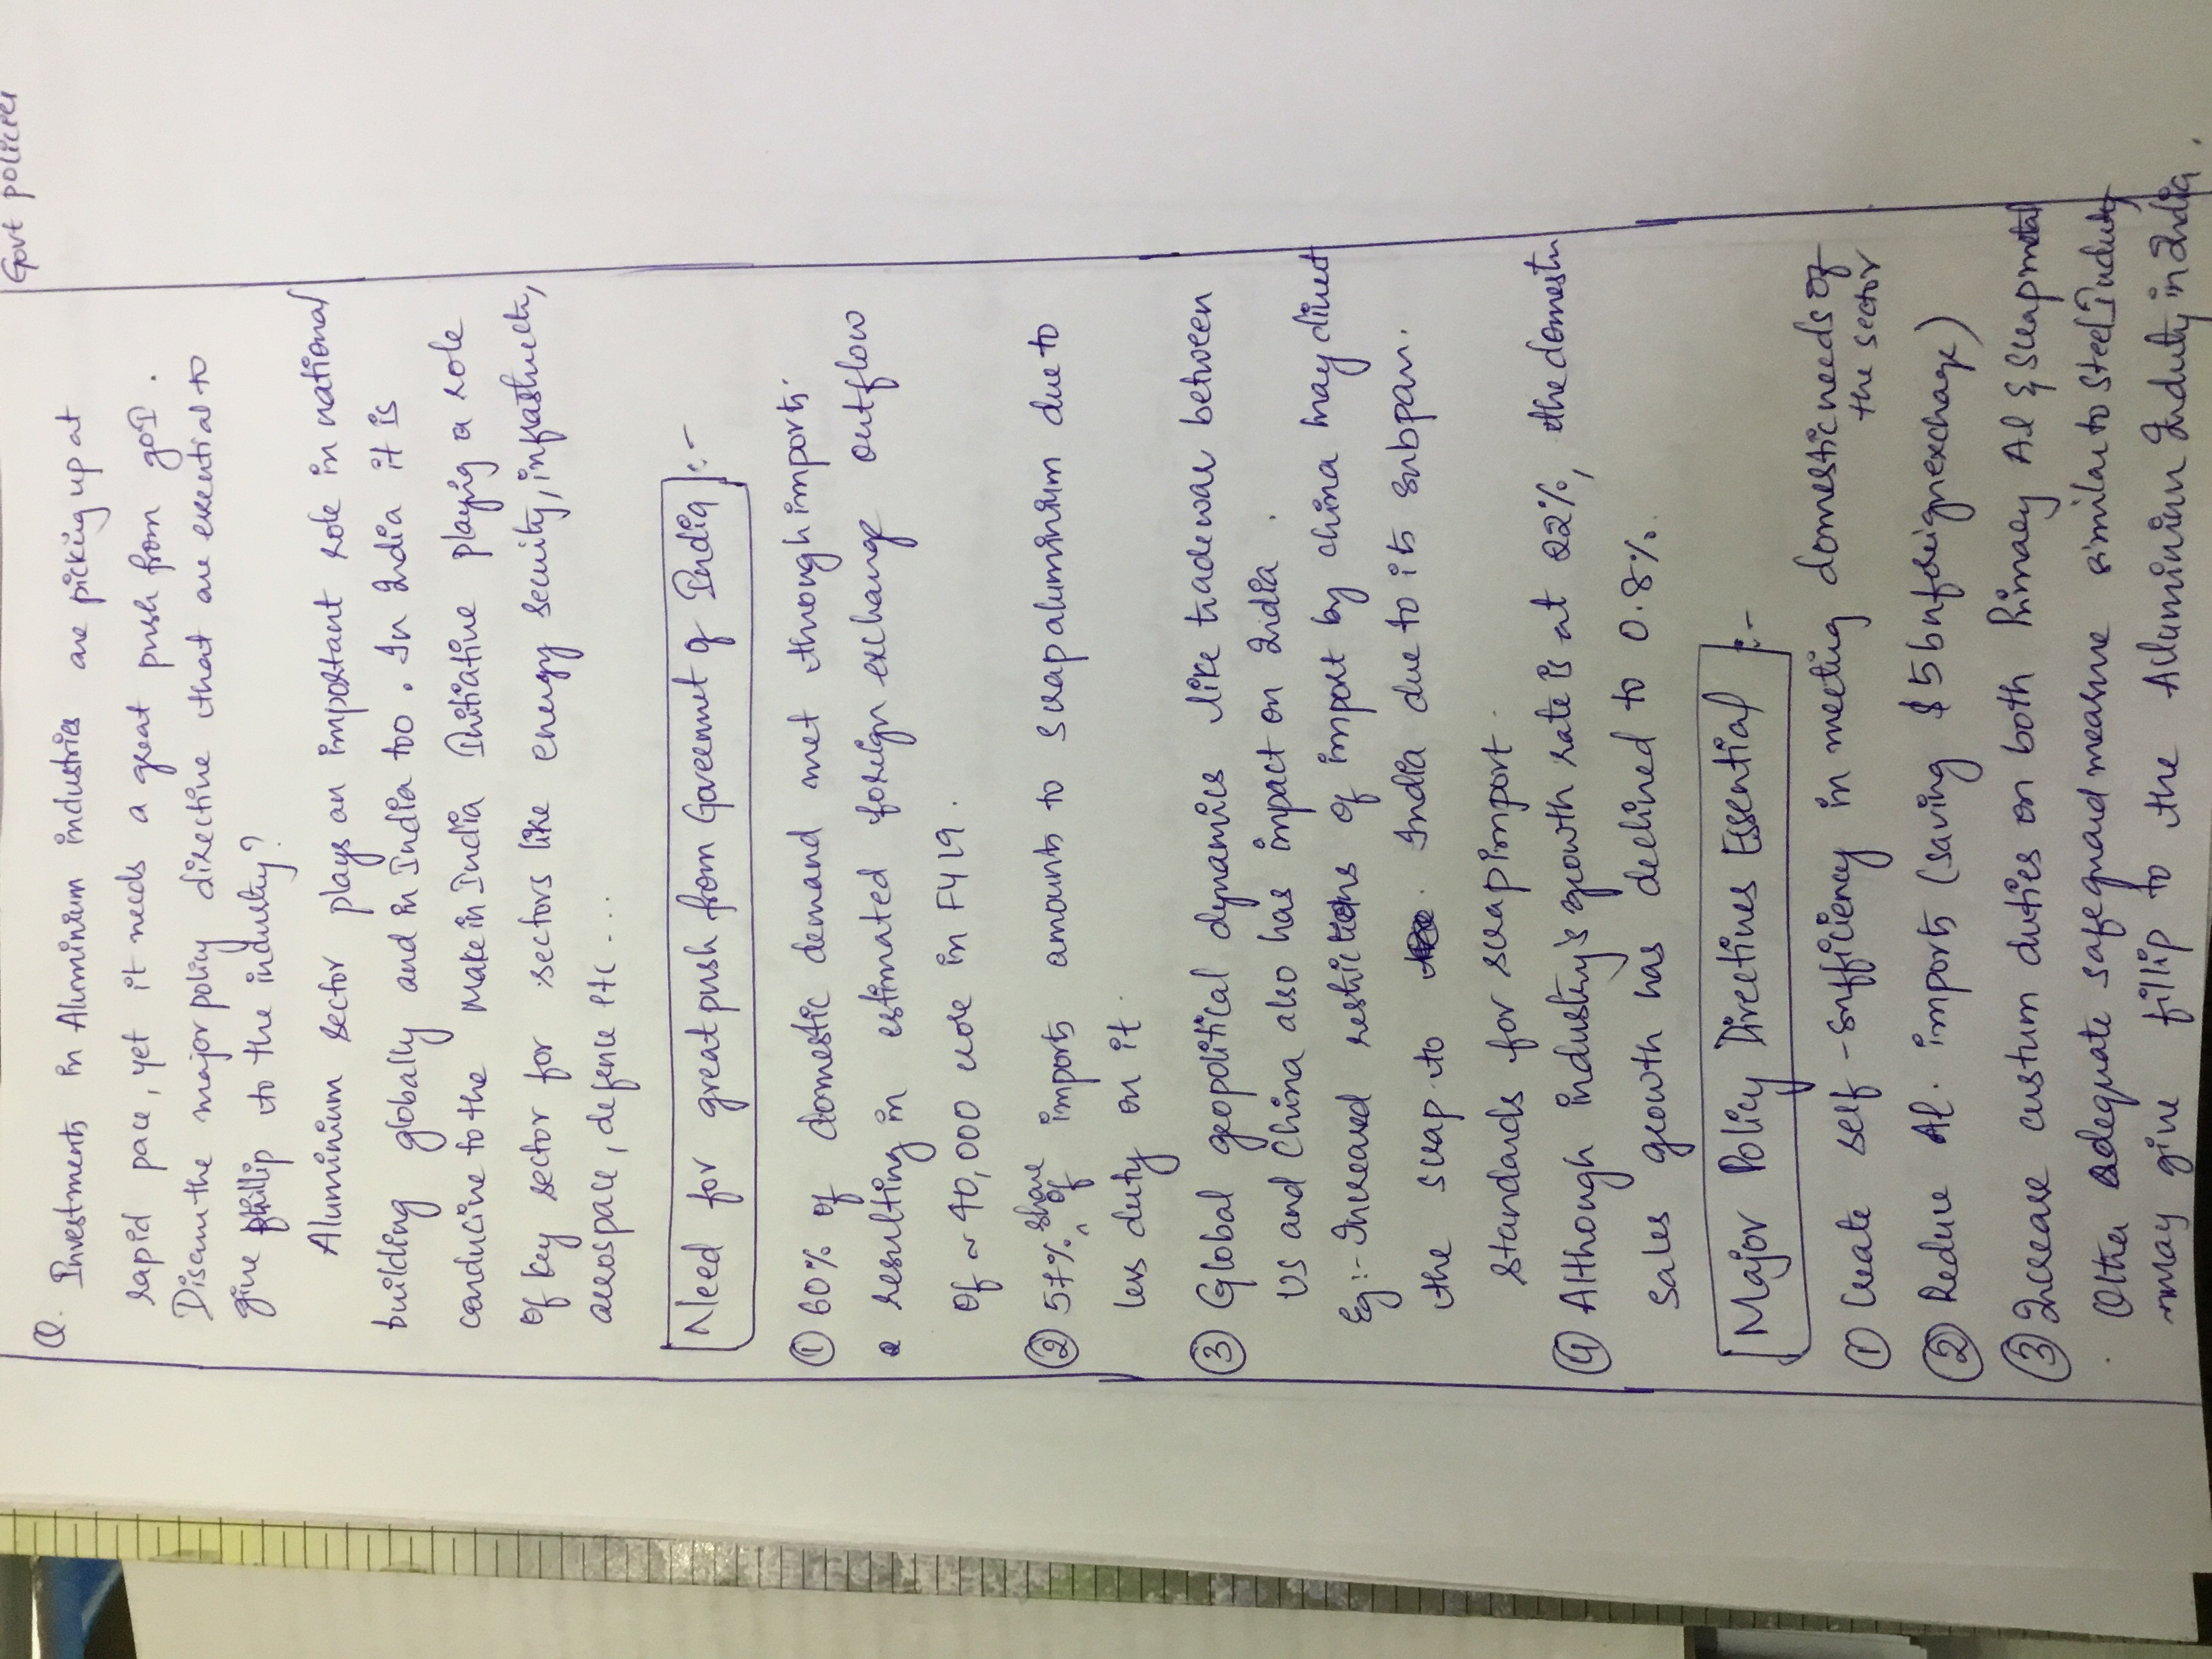 Govt policies
Q. Investments in Aluminium industries are picking up at
rapid pace, yet it needs a great push from goI.
Discuss the major policy directive that are essential to
give fillip to the industry?
Aluminium sector plays an important role in national
building globally and in India too. In India it is
conducive to the Make in India Initiative playing a role
of key sector for sectors like energy security, infrastructure,
aerospace, defence etc...
Need for great push from Government of India :-
① 60% of domestic demand met through imports.
resulting in estimated foreign exchange outflow
of ~ 40,000 crore in FY19.
② 57% share of imports amounts to scrap aluminium due to
less duty on it.
③ Global geopolitical dynamics like trade war between
US and China also has impact on India.
Eg:- Increased restrictions of import by china may divert
the scrap to India due to its subpar
standards for scrap import.
④ Although industry's growth rate is at 22%, the domestic
sales growth has declined to 0.8%.
Major Policy Directives Essential :-
① Create self-sufficiency in meeting domestic needs of
the sector
② Reduce Al. imports (saving $5bn foreign exchange)
③ Increase custum duties on both Primary Al & Scrap metal
Other adequate safeguard measure similar to Steel Industry
may give fillip to the Aluminium Industry in India.